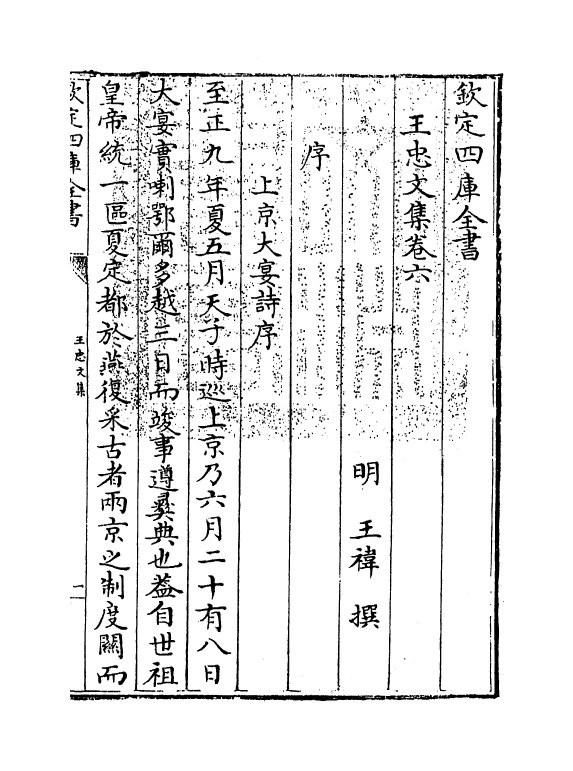 欽定四庫全書
王忠文集卷六
明 王禕 撰
序
上京大宴詩序
至正九年夏五月天子時巡上京乃六月二十有八日
大宴實喇鄂爾多越三日而竣事遵彛典也葢自世祖
皇帝統一區夏定都於燕復采古者兩京之制度關而
欽定四庫全書
王忠文集